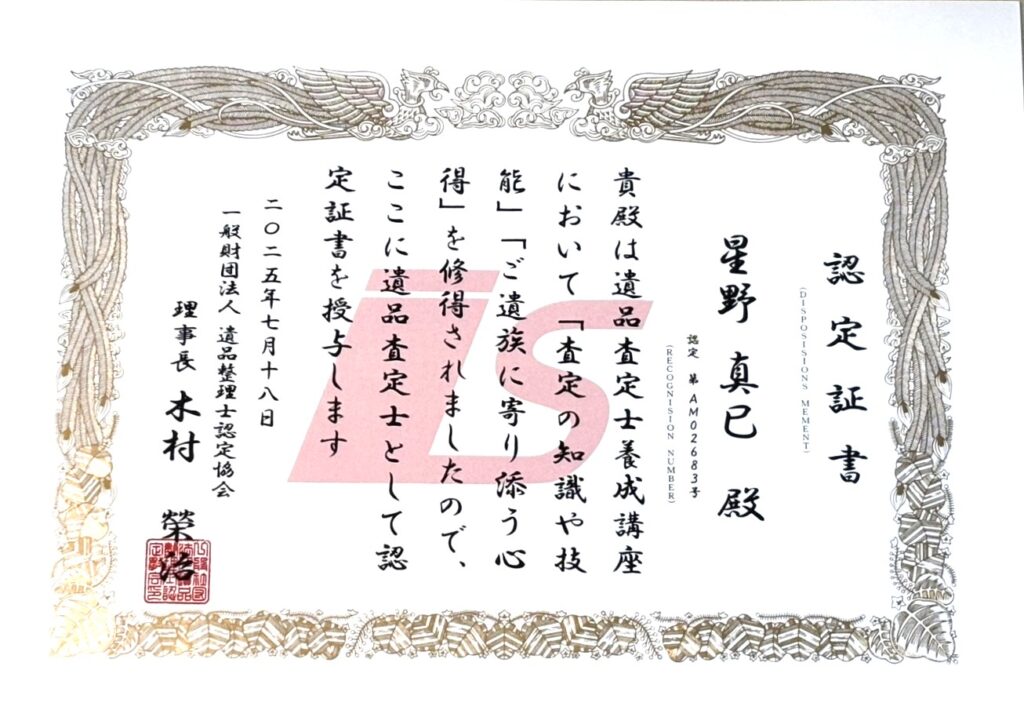 認定証書
(DISPOSISIONS MEMENT)
星野 真已 殿
認定 第AM02683号
(RECOGNISION NUMBER)
貴殿は遺品査定士養成講座
において「査定の知識や技
能」「ご遺族に寄り添う心
得」を修得されましたので、
ここに遺品査定士として認
定証書を授与します
二〇二五年七月十八日
一般財団法人 遺品整理士認定協会
理事長 木村 榮治
is